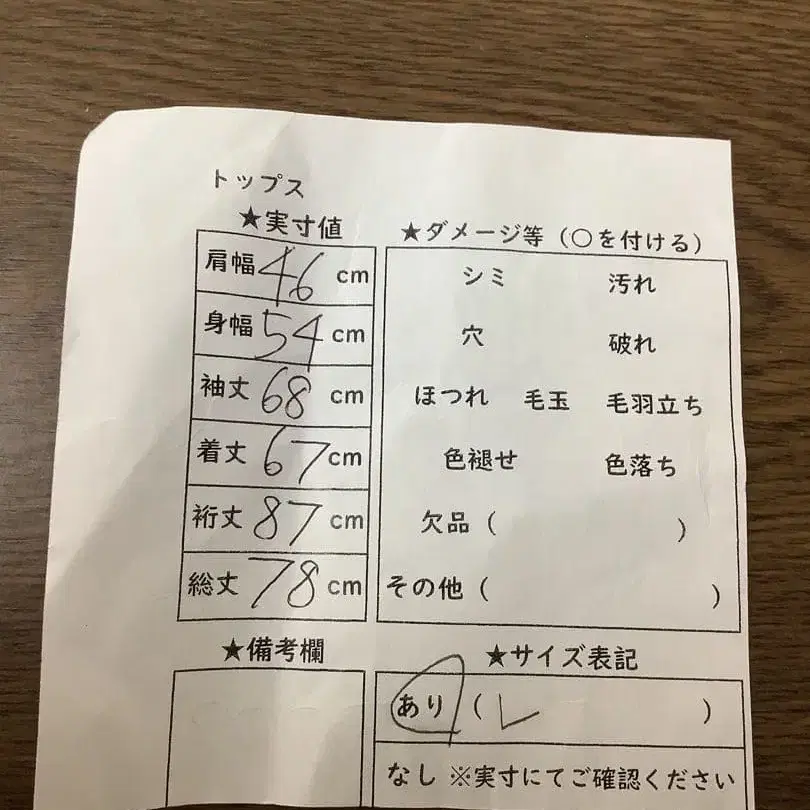 トップス
★実寸値
肩幅 46 cm
身幅 54 cm
袖丈 68 cm
着丈 67 cm
裄丈 87 cm
総丈 78 cm
★ダメージ等（○を付ける）
シミ 汚れ
穴 破れ
ほつれ 毛玉 毛羽立ち
色褪せ 色落ち
欠品（ ）
その他（ ）
★備考欄
★サイズ表記
あり（L）
なし ※実寸にてご確認ください